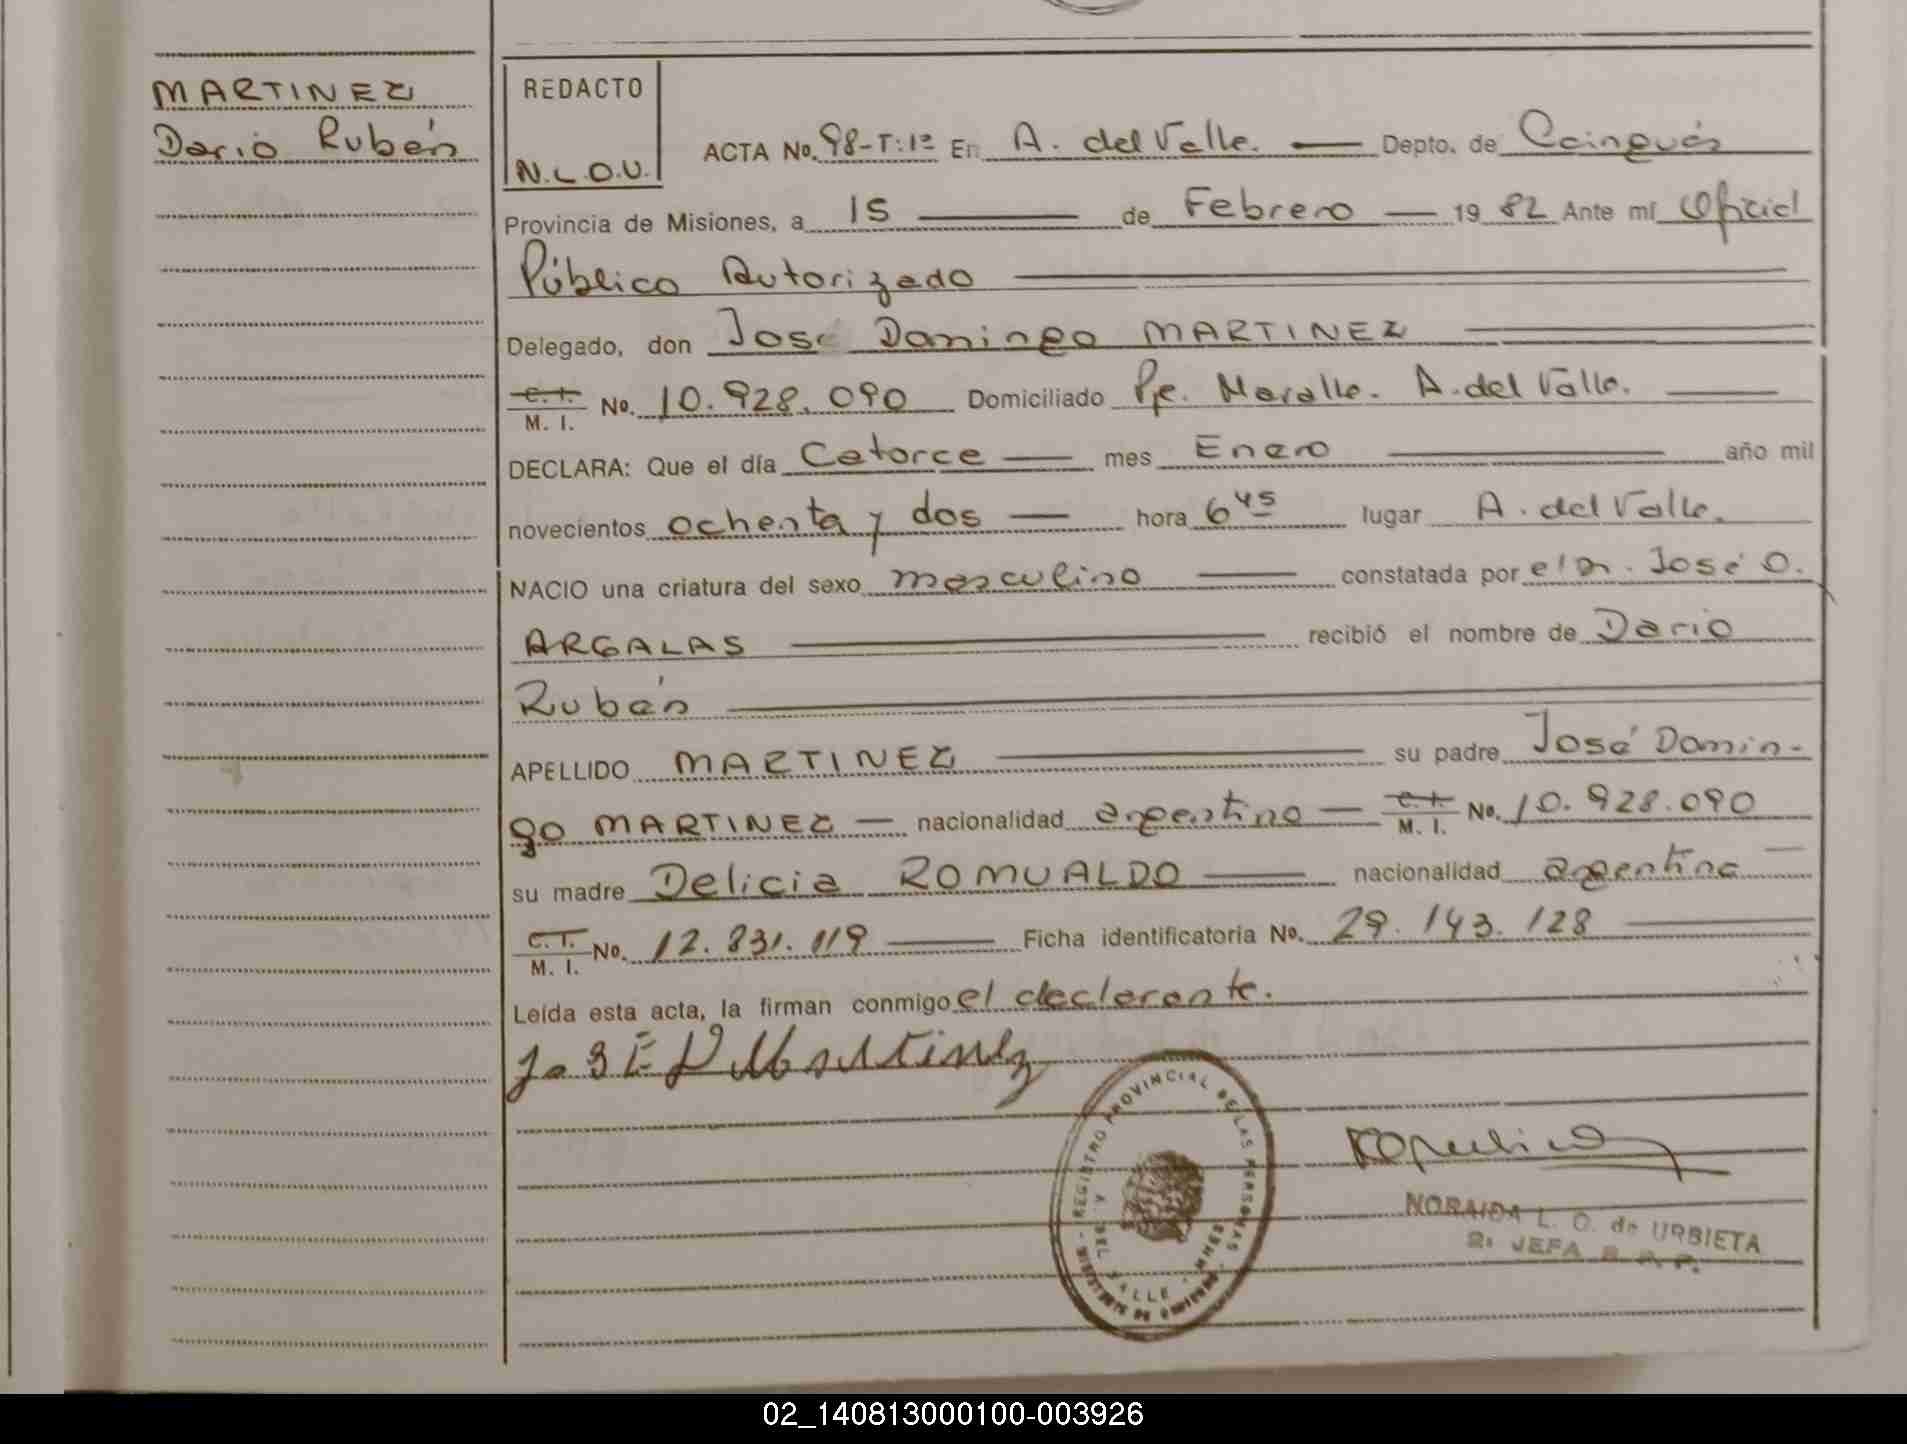 MARTINEZ
Dario Rubén
REDACTO
N.L.O.U.
ACTA No. 98-T:1º En A. del Valle. Depto. de Cainguás
Provincia de Misiones, a 15 de Febrero 19 82 Ante mí Oficial
Público Autorizado
Delegado, don José Domingo MARTINEZ
C.I.
M. I. No. 10.928.090 Domiciliado Pje. Maralle. A. del Valle.
DECLARA: Que el día Catorce mes Enero año mil
novecientos ochenta y dos hora 6 45 lugar A. del Valle.
NACIO una criatura del sexo masculino constatada por el Dr. José O.
ARGALAS recibió el nombre de Dario
Rubén
APELLIDO MARTINEZ su padre José Domin-
go MARTINEZ nacionalidad argentino C.I.
M. I. No. 10.928.090
su madre Delicia ROMUALDO nacionalidad argentina
C.I.
M. I. No. 12.831.119 Ficha identificatoria No. 29.143.128
Leída esta acta, la firman conmigo el declarante.
José D Martinez
REGISTRO PROVINCIAL DE LAS PERSONAS
A. DEL VALLE
NORAIDA L. O. de URBIETA
2: JEFA R. P. P.
02_140813000100-003926